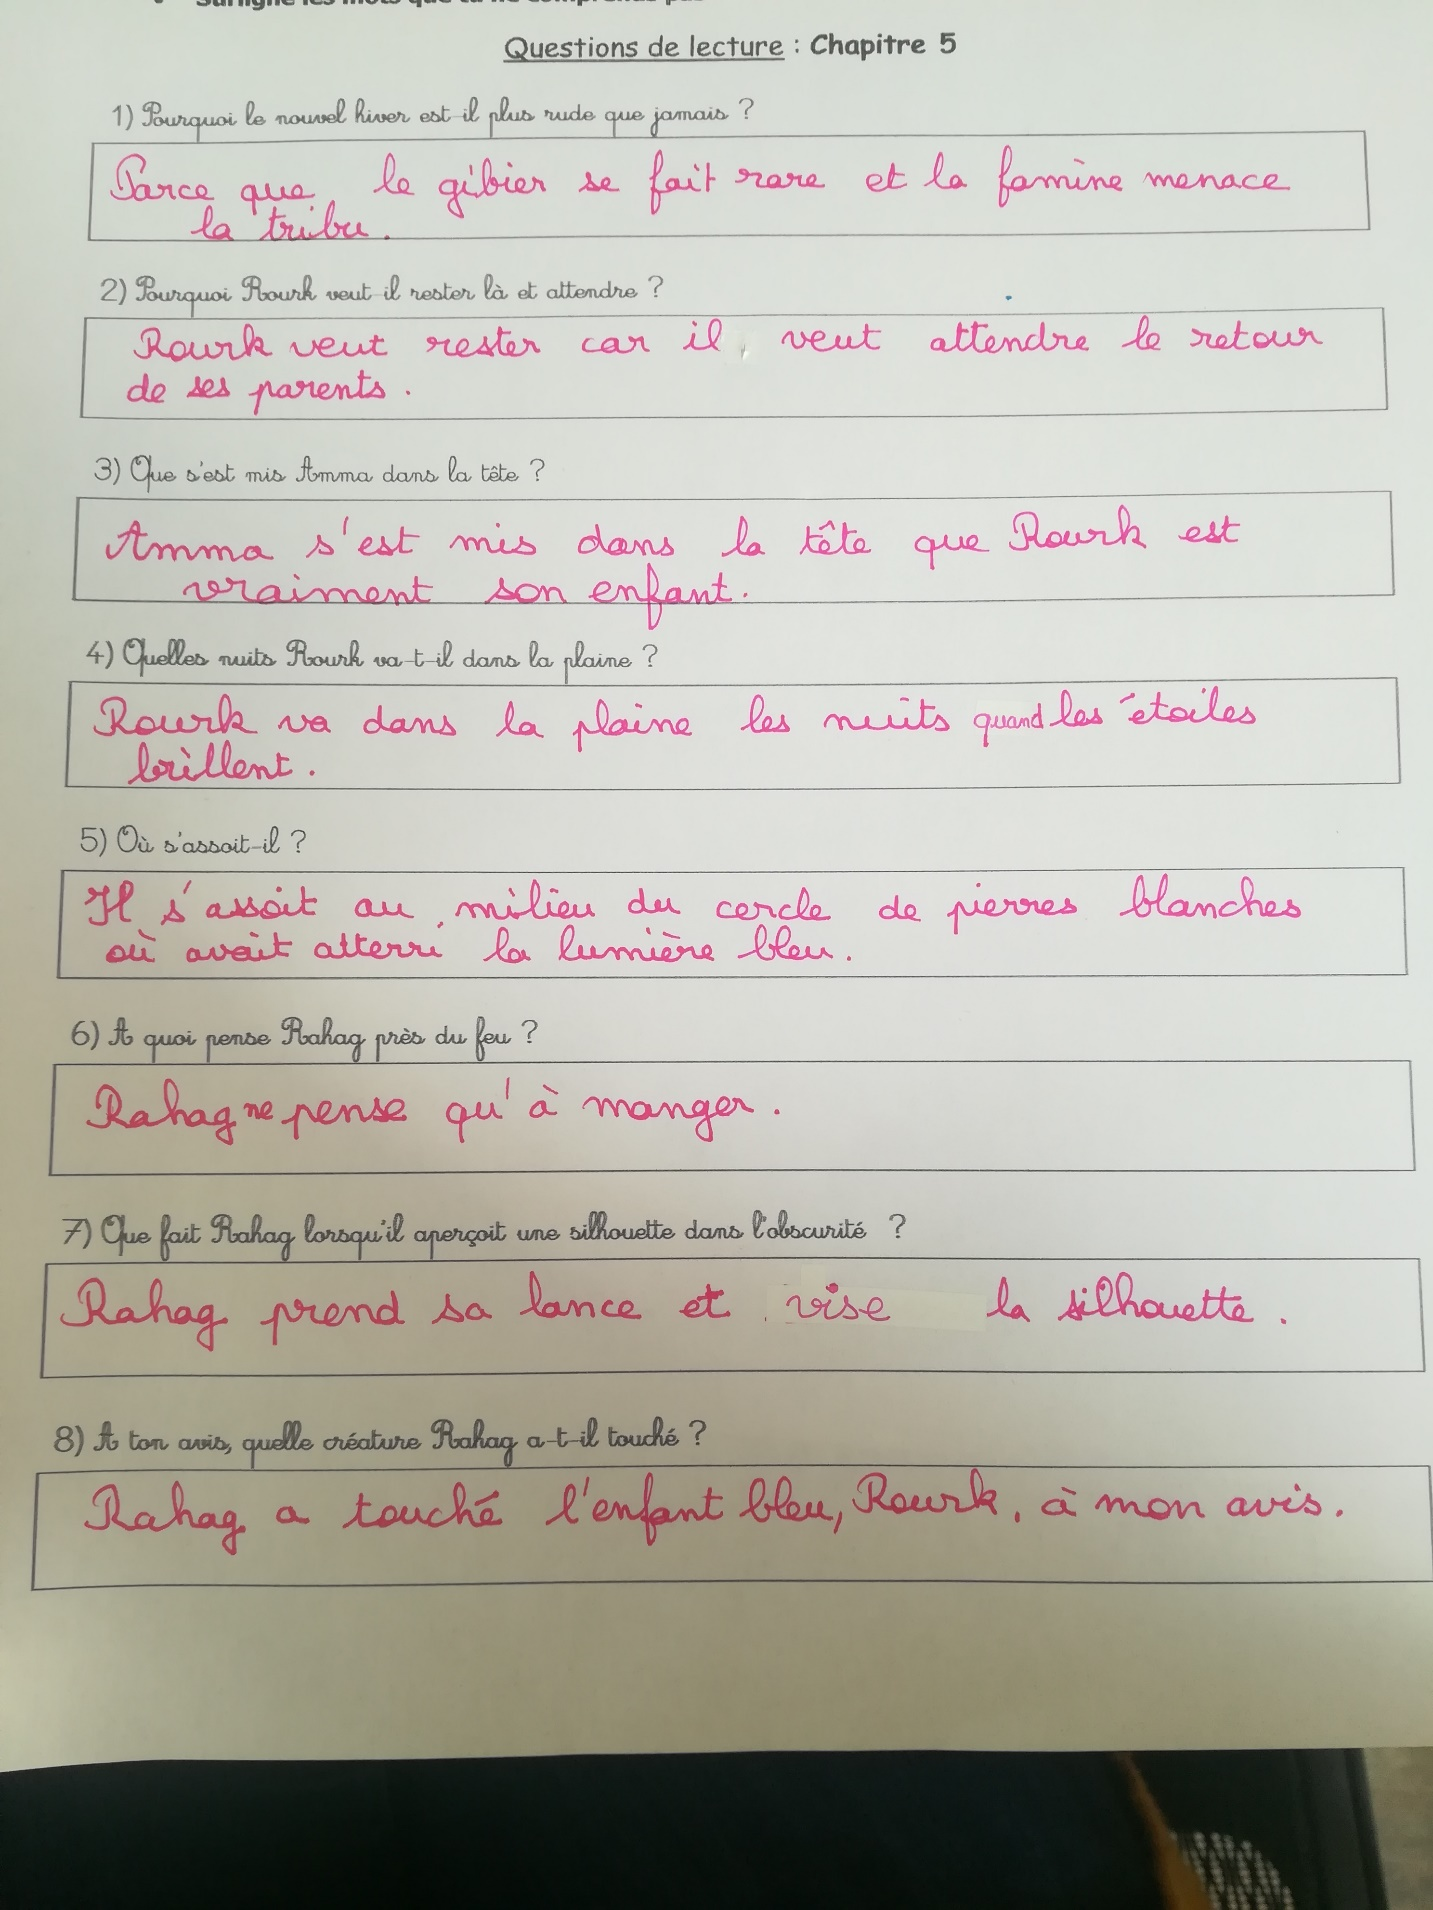 Surligne les mots que tu ne comprends pas
Questions de lecture : Chapitre 5
1) Pourquoi le nouvel hiver est-il plus rude que jamais ?
Parce que le gibier se fait rare et la famine menace
la tribu.
2) Pourquoi Rourk veut-il rester là et attendre ?
Rourk veut rester car il veut attendre le retour
de ses parents.
3) Que s'est mis Amma dans la tête ?
Amma s'est mis dans la tête que Rourk est
vraiment son enfant.
4) Quelles nuits Rourk va-t-il dans la plaine ?
Rourk va dans la plaine les nuits quand les étoiles
brillent.
5) Où s'assoit-il ?
Il s'assoit au milieu du cercle de pierres blanches
où avait atterri la lumière bleu.
6) A quoi pense Rahag près du feu ?
Rahag ne pense qu'à manger.
7) Que fait Rahag lorsqu'il aperçoit une silhouette dans l'obscurité ?
Rahag prend sa lance et vise la silhouette.
8) A ton avis, quelle créature Rahag a-t-il touché ?
Rahag a touché l'enfant bleu, Rourk, à mon avis.